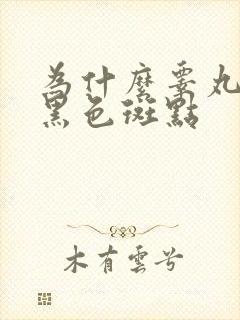 為什麼要丸
黑色斑點
木有雲兮